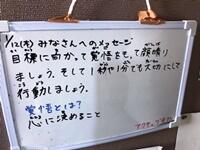 1/12(木) みなさんへのメッセージ
目標に向かって覚悟をもって頑張り
ましょう。そして1秒や1分でも大切にして
行動しましょう。
覚悟とは?
心に決めること